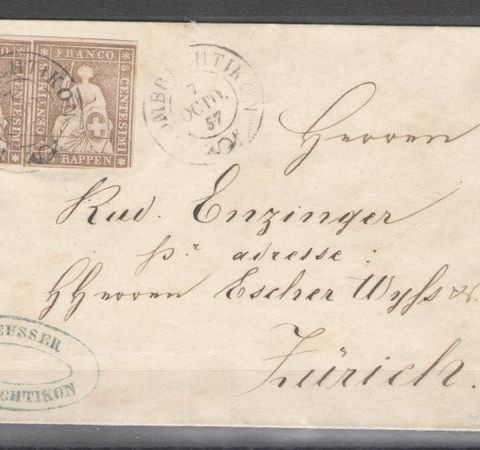 FRANCO
5 CENTESIMI
5 CENTIMES
RAPPEN
OMBRECHTIKON
7
OCTO.
57
Herren
Rud. Enzinger
pr adresse:
HHerren Escher Wyss &
Zürich.
EUSSER
CHTIKON